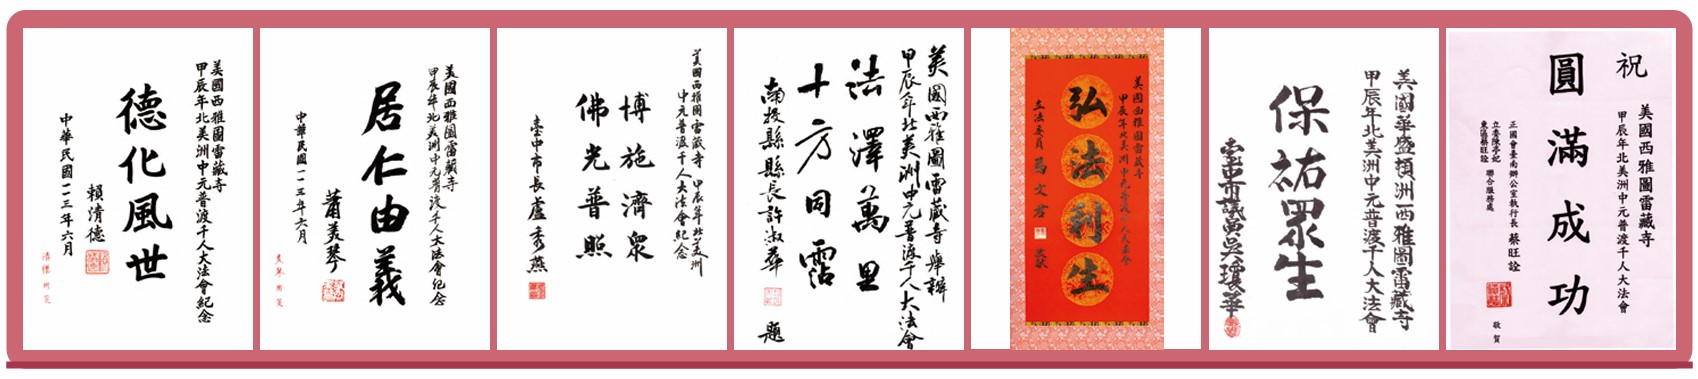 美國西雅圖雷藏寺
甲辰年北美洲中元普渡千人大法會紀念
德化風世
賴清德
中華民國一一三年六月
清德用箋
美國西雅圖雷藏寺
甲辰年北美洲中元普渡千人大法會紀念
居仁由義
蕭美琴
中華民國一一三年六月
美琴用箋
美國西雅圖雷藏寺 甲辰年北美洲
中元普渡千人大法會紀念
博施濟眾
佛光普照
臺中市長盧秀燕
美國西雅圖雷藏寺舉辦
甲辰年北美洲中元普渡千人大法會
法澤萬里
十方同霑
南投縣縣長許淑華 題
美國西雅圖雷藏寺
甲辰年北美洲中元普渡千人大法會
弘法利生
立法委員 馬文君 敬獻
美國華盛頓洲西雅圖雷藏寺
甲辰年北美洲中元普渡千人大法會
保祐眾生
臺中市議員吳瓊華
祝
美國西雅圖雷藏寺
甲辰年北美洲中元普渡千人大法會
圓滿成功
正國會臺南辦公室執行長 蔡旺詮
立委陳亭妃
東區蔡旺詮 聯合服務處
敬賀